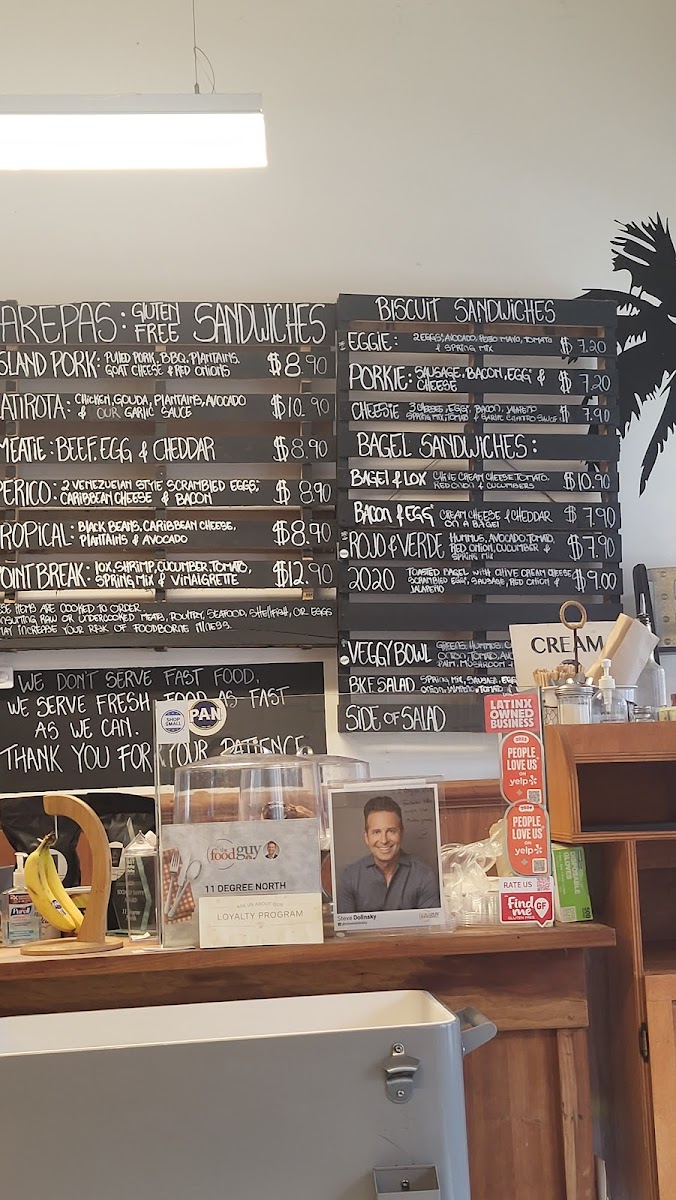 AREPAS: GLUTEN FREE SANDWICHES
SLAND PORK: PULLED PORK, BBQ, PLANTAINS, $8.90
GOAT CHEESE & RED ONIONS
ATIROTA: CHICKEN, GOUDA, PLANTAINS, AVOCADO $10.90
& OUR GARLIC SAUCE
MEATIE: BEEF, EGG & CHEDDAR $8.90
PERICO: 2 VENEZUELAN STYLE SCRAMBLED EGGS, $8.90
CARIBBEAN CHEESE & BACON
ROPICAL: BLACK BEANS, CARIBBEAN CHEESE, $8.90
PLANTAINS & AVOCADO
OINT BREAK: LOX, SHRIMP, CUCUMBER, TOMATO, $12.90
SPRING MIX & VINAIGRETTE
SE ITEMS ARE COOKED TO ORDER.
NSUMING RAW OR UNDERCOOKED MEATS, POULTRY, SEAFOOD, SHELLFISH, OR EGGS
MAY INCREASE YOUR RISK OF FOODBORNE ILLNESS.
BISCUIT SANDWICHES
EGGIE: 2 EGGS, AVOCADO, PESTO MAYO, TOMATO $7.20
& SPRING MIX
PORKIE: SAUSAGE, BACON, EGG & $7.20
CHEESE
CHEESIE 3 CHEESES, EGGS, BACON, JALAPEÑO $7.90
SPRING MIX, TOMATO & GARLIC CILANTRO SAUCE
BAGEL SANDWICHES:
BAGEL & LOX CHIVE CREAM CHEESE, TOMATO, $10.90
RED ONION & CUCUMBERS
BACON & EGG CREAM CHEESE & CHEDDAR $7.90
ON A BAGEL
ROJO & VERDE HUMMUS, AVOCADO, TOMATO, $7.90
RED ONION, CUCUMBER &
SPRING MIX
2020 TOASTED BAGEL WITH CHIVE CREAM CHEESE $9.00
SCRAMBLED EGG, SAUSAGE, RED ONION &
JALAPEÑO
VEGGY BOWL GREENS, HUMMUS,
ONION, TOMATO,
PALM, MUSHROOM
BKE SALAD SPRING MIX, SAUSAGE, EGG
ONION, JALAPEÑO, TOMATO
SIDE OF SALAD
CREAM
WE DON'T SERVE FAST FOOD,
WE SERVE FRESH FOOD AS FAST
AS WE CAN.
THANK YOU FOR YOUR PATIENCE
SHOP
SMALL
PAN
LATINX
OWNED
BUSINESS
PEOPLE
LOVE US
ON
yelp
PEOPLE
LOVE US
ON
yelp
the
foodguy
11 DEGREE NORTH
ASK US ABOUT OUR
LOYALTY PROGRAM
Steve Dolinsky
RATE US
Find
me GF
GLUTEN FREE
Purell